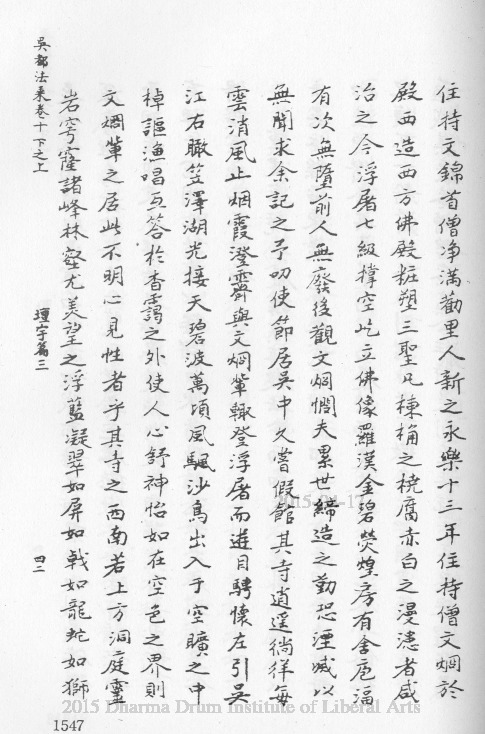 住持文錦首僧净滿勸里人新之永樂十三年住持僧文炯於
殿西造西方佛殿粧塑三聖凡棟桷之橈腐赤白之漫漶者咸
治之今浮屠七級撐空屹立佛像羅漢金碧熒煌房有舍庖湢
有次無墮前人無廢後觀文炯憫夫累世締造之勤恐湮滅以
無聞求余記之予叨使節居吳中久嘗假館其寺逍遥徜徉每
雲消風止烟霞澄霽與文炯輩輙登浮屠而遊目騁懷左引吳
江右瞰笠澤湖光接天碧波萬頃風颿沙鳥出入于空曠之中
棹謳漁唱互答於杳靄之外使人心舒神怡如在空色之界則
文炯輩之居此不明心見性者乎其寺之西南若上方洞庭靈
岩穹窿諸峰林壑尤美望之浮藍凝翠如屏如戟如龍蛇如獅
吳都法乘卷十下之上
壇宇篇三
四二
2015-04-17
2015 Dharma Drum Institute of Liberal Arts
1547